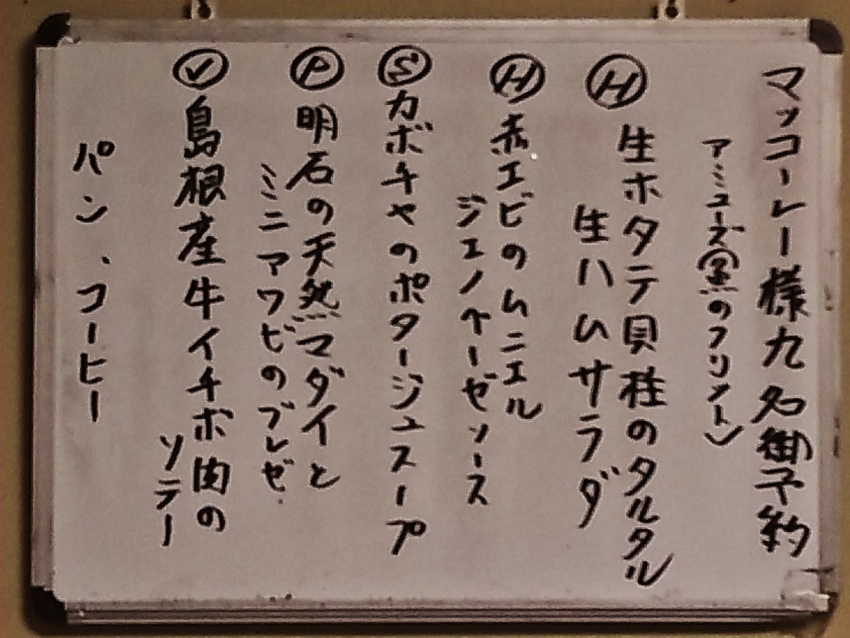 マッコーレー様九名御予約
アミューズ(魚のフリット)
Ⓗ生ホタテ貝柱のタルタル
生ハムサラダ
Ⓗ赤エビのムニエル
ジェノベーゼソース
Ⓢカボチャのポタージュスープ
Ⓟ明石の天然マダイと
ミニアワビのブレゼ
Ⓥ島根産牛イチボ肉の
ソテー
パン、コーヒー